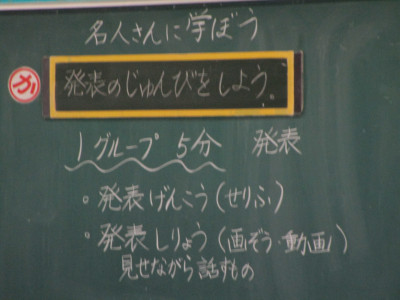 名人さんに学ぼう
か 発表のじゅんびをしよう。
1グループ 5分 発表
・発表げんこう(せりふ)
・発表しりょう(画ぞう・動画)
見せながら話すもの